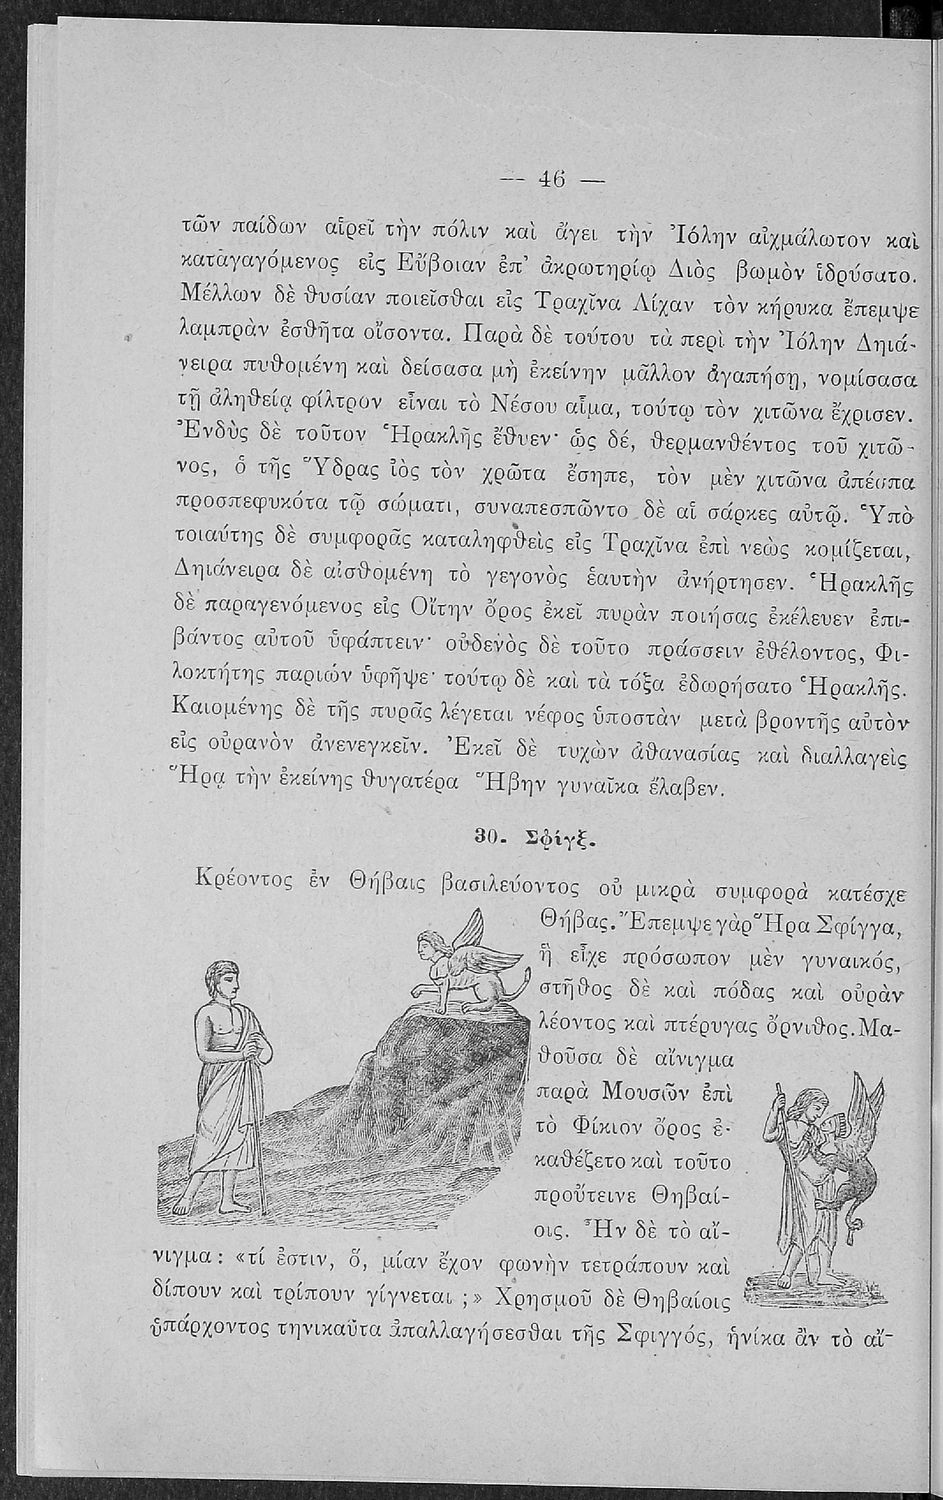 — 46 —
τῶν παίδων αἱρεῖ τὴν πόλιν καὶ ἄγει τὴν Ἰόλην αἰχμάλωτον καὶ
καταγαγόμενος εἰς Εὔβοιαν ἐπ’ ἀκρωτηρίῳ Διὸς βωμὸν ἱδρύσατο.
Μέλλων δὲ θυσίαν ποιεῖσθαι εἰς Τραχῖνα Λίχαν τὸν κήρυκα ἔπεμψε
λαμπρὰν ἐσθῆτα οἴσοντα. Παρὰ δὲ τούτου τὰ περὶ τὴν Ἰόλην Δηιά-
νειρα πυθομένη καὶ δείσασα μὴ ἐκείνην μᾶλλον ἀγαπήσῃ, νομίσασα
τῇ ἀληθείᾳ φίλτρον εἶναι τὸ Νέσου αἷμα, τούτῳ τὸν χιτῶνα ἔχρισεν.
Ἐνδὺς δὲ τοῦτον Ἡρακλῆς ἔθυεν· ὡς δέ, θερμανθέντος τοῦ χιτῶ-
νος, ὁ τῆς Ὕδρας ἰὸς τὸν χρῶτα ἔσηπε, τὸν μὲν χιτῶνα ἀπέσπα
προσπεφυκότα τῷ σώματι, συναπεσπῶντο δὲ αἱ σάρκες αὐτῷ. Ὑπὸ
τοιαύτης δὲ συμφορᾶς καταληφθεὶς εἰς Τραχῖνα ἐπὶ νεὼς κομίζεται,
Δηιάνειρα δὲ αἰσθομένη τὸ γεγονὸς ἑαυτὴν ἀνήρτησεν. Ἡρακλῆς
δὲ παραγενόμενος εἰς Οἴτην ὄρος ἐκεῖ πυρὰν ποιήσας ἐκέλευεν ἐπι-
βάντος αὐτοῦ ὑφάπτειν· οὐδενὸς δὲ τοῦτο πράσσειν ἐθέλοντος, Φι-
λοκτήτης παριὼν ὑφῆψε· τούτῳ δὲ καὶ τὰ τόξα ἐδωρήσατο Ἡρακλῆς.
Καιομένης δὲ τῆς πυρᾶς λέγεται νέφος ὑποστὰν μετὰ βροντῆς αὐτὸν
εἰς οὐρανὸν ἀνενεγκεῖν. Ἐκεῖ δὲ τυχὼν ἀθανασίας καὶ διαλλαγεὶς
Ἥρᾳ τὴν ἐκείνης θυγατέρα Ἥβην γυναῖκα ἔλαβεν.
30. Σφίγξ.
Κρέοντος ἐν Θήβαις βασιλεύοντος οὐ μικρὰ συμφορὰ κατέσχε
Θήβας. Ἔπεμψε γὰρ Ἥρα Σφίγγα,
ἣ εἶχε πρόσωπον μὲν γυναικός,
στῆθος δὲ καὶ πόδας καὶ οὐρὰν
λέοντος καὶ πτέρυγας ὄρνιθος. Μα-
θοῦσα δὲ αἴνιγμα
παρὰ Μουσῶν ἐπὶ
τὸ Φίκιον ὄρος ἐ-
καθέζετο καὶ τοῦτο
προὔτεινε Θηβαί-
οις. Ἦν δὲ τὸ αἴ-
νιγμα: «τί ἐστιν, ὅ, μίαν ἔχον φωνὴν τετράπουν καὶ
δίπουν καὶ τρίπουν γίγνεται ;» Χρησμοῦ δὲ Θηβαίοις
ὑπάρχοντος τηνικαῦτα ἀπαλλαγήσεσθαι τῆς Σφιγγός, ἡνίκα ἂν τὸ αἴ-